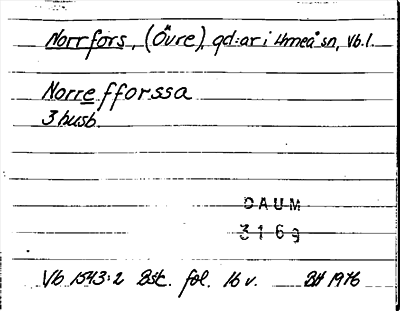 Norrfors, (Övre), gd:ar i Umeå sn, Vb.l.
Norrefforssa
3 husb.
DAUM
3169
Vb 1543:2 Bst. fol. 16 v. BH 1976